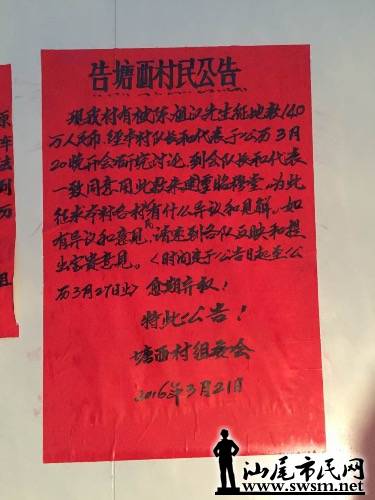 告塘西村民公告
现我村有被陈祖汉先生征地款140
万人民币，经本村队长和代表于公历3月
20晚开会研究讨论，到会队长和代表
一致同意用此款来重
征求本村各村有什么异议和见解。如
有异议和意见，请速到各队反映和提
出宝贵意见。（时间定于公告日起至公
历3月27日止）愈期弃权！
特此公告！
塘西村组委会
2016年3月21日
原
车
法
到
万
且
汕尾市民网
www.swsm.net